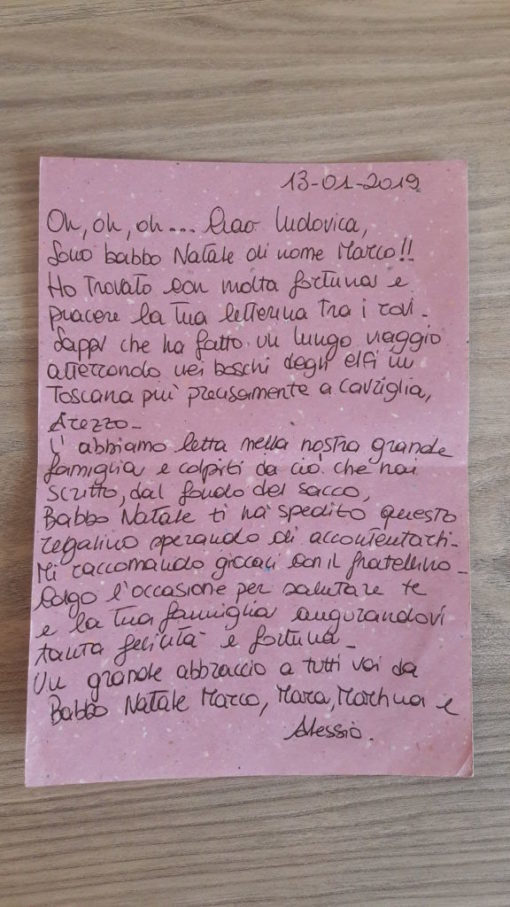 13-01-2019
Oh, oh, oh... Ciao Ludovica,
Sono babbo Natale di nome Marco!!
Ho trovato con molta fortuna e
piacere la tua letterina tra i rovi.
Sappi che ha fatto un lungo viaggio
atterrando nei boschi degli elfi in
Toscana più precisamente a Cavriglia,
Arezzo-
L'abbiamo letta nella nostra grande
famiglia e colpiti da ciò che hai
scritto, dal fondo del sacco,
Babbo Natale ti ha spedito questo
regalino sperando di accontentarti-
Mi raccomando giocaci con il fratellino-
Colgo l'occasione per salutare te
e la tua famiglia augurandovi
tanta felicità e fortuna-
Un grande abbraccio a tutti voi da
Babbo Natale Marco, Mara, Martina e
Alessio.